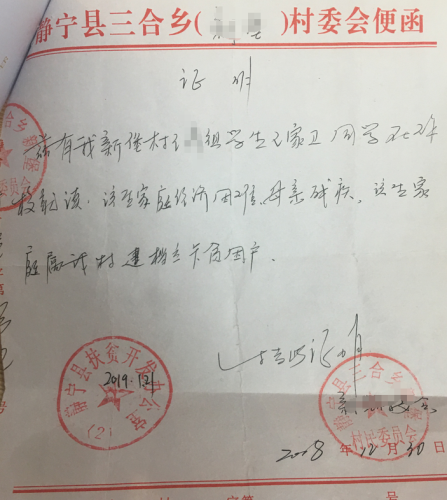 静宁县三合乡( )村委会便函
证明
兹有我新堡村 组学生王家卫同学在
校就读，该生家庭经济困难，母亲残疾，该生家
庭属我村建档立卡贫困户.
特此证明
静宁县扶贫开发办公室
(2)
2019.1.21
静宁县三合乡
村民委员会
2018年12月30日
号